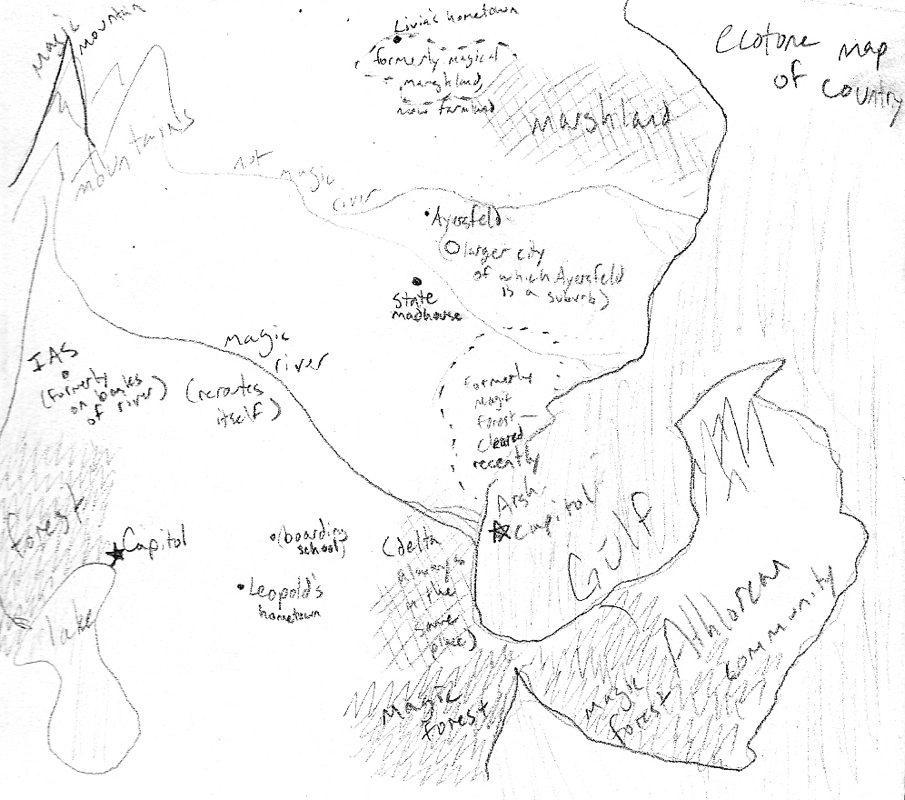 Livia's hometown
ecotone map
of country
magic
mountain
formerly magical
marshland,
now farmland
marshland
mountains
not
magic
river
Ayersfeld
larger city
of which Ayersfeld
is a suburb)
State
madhouse
magic
river
(reroutes
itself)
IAS
(formerly
on banks
of river)
formerly
magic
forest—
cleared
recently
forest
Capitol
lake
(boarding
school)
Leopold's
hometown
(delta
always
in the
same
place)
Arsh.
capitol
Gulf
Athlorean
community
magic
forest
magic
forest